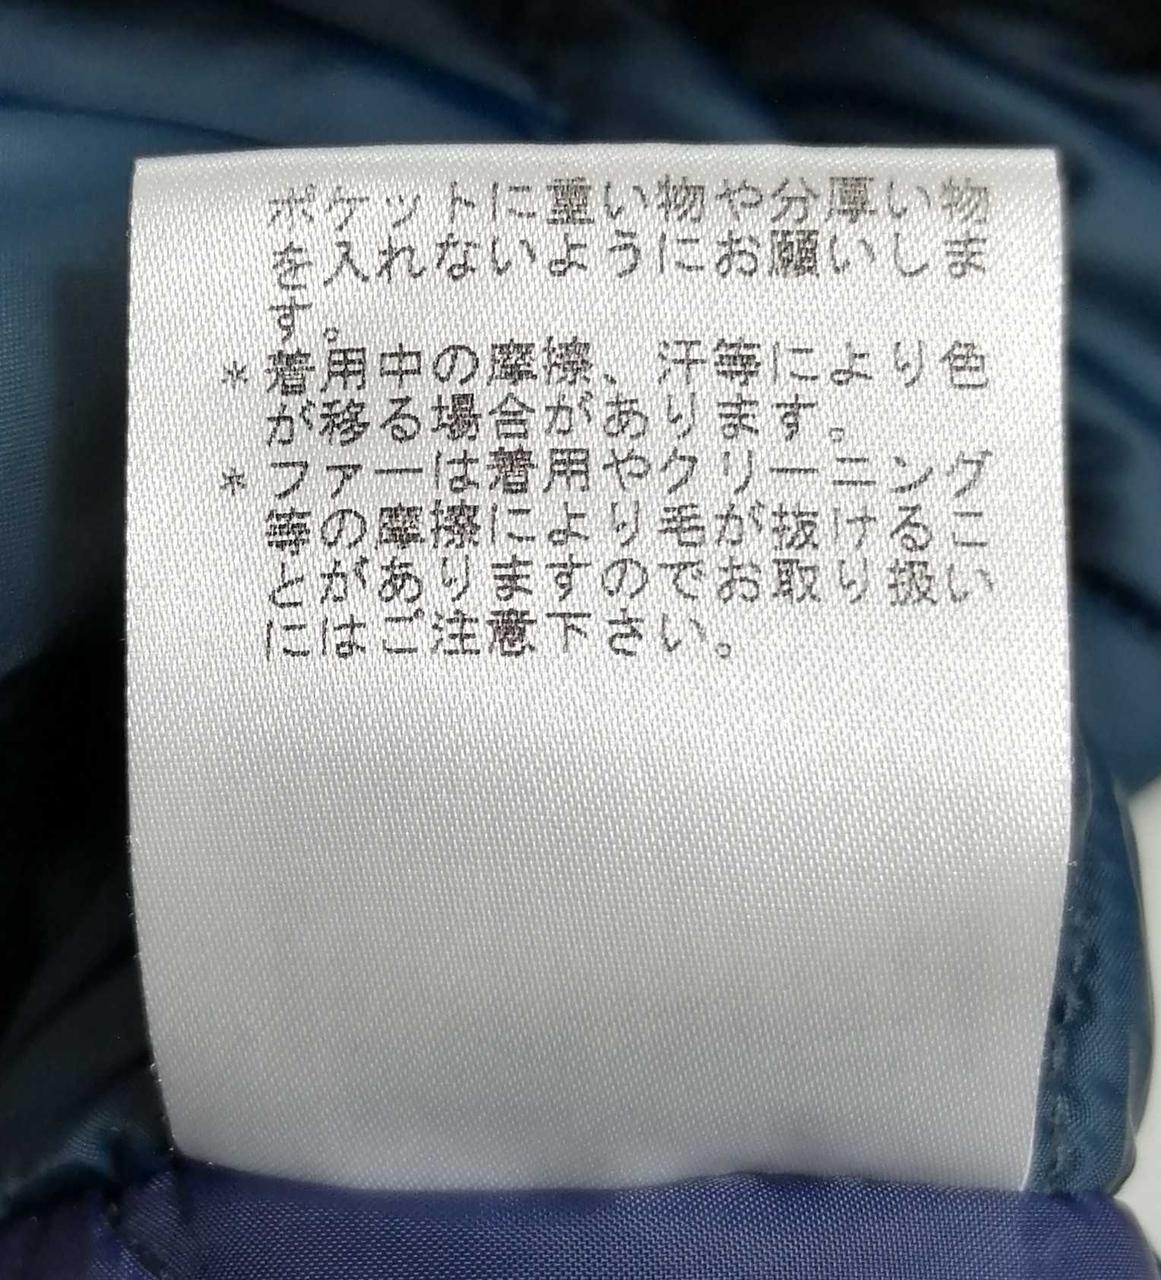 ポケットに重い物や分厚い物
を入れないようにお願いしま
す。
＊着用中の摩擦、汗等により色
が移る場合があります。
＊ファーは着用やクリーニング
等の摩擦により毛が抜けるこ
とがありますのでお取り扱い
にはご注意下さい。